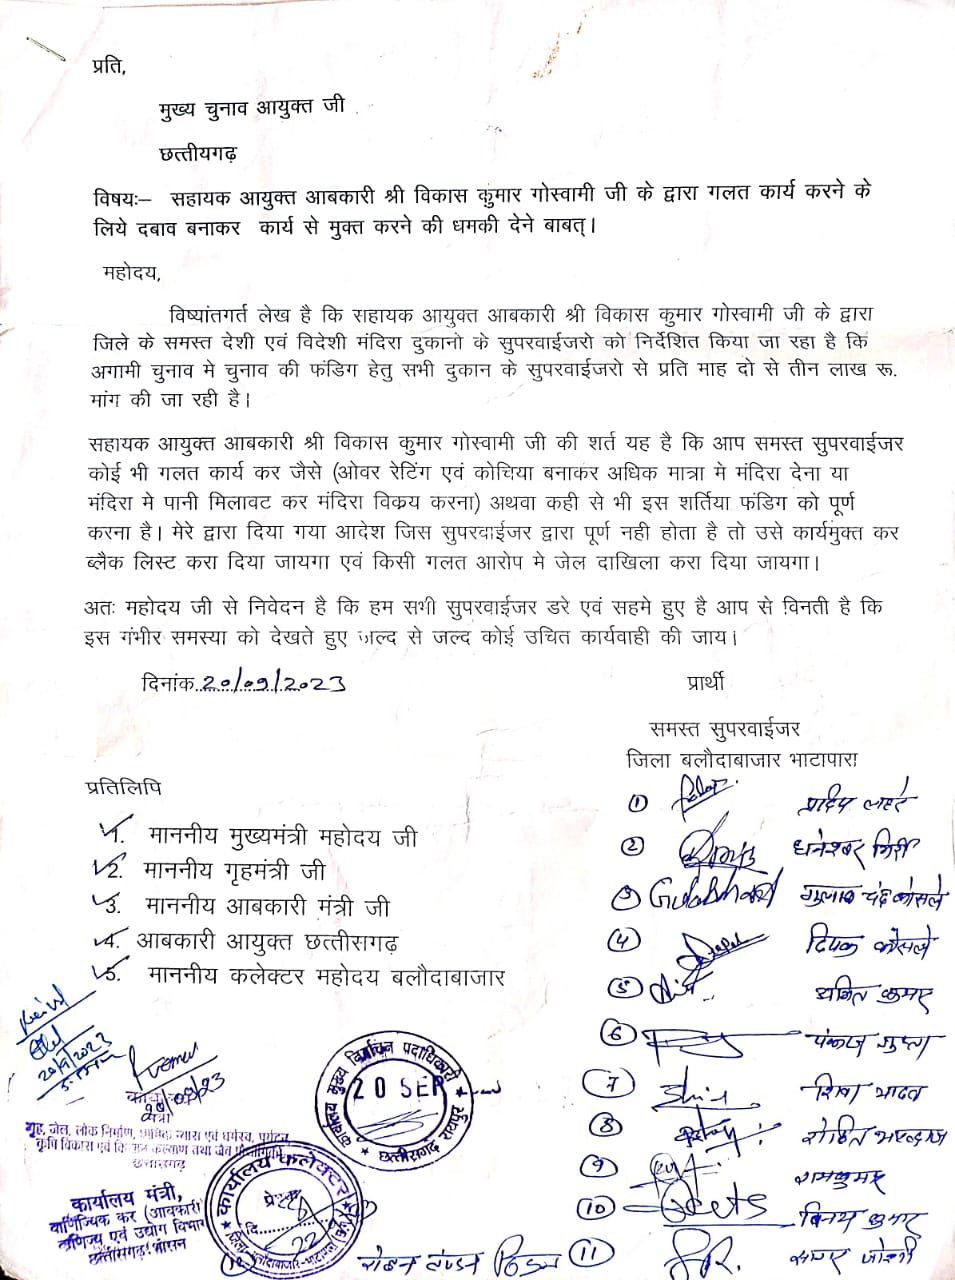 प्रति,
मुख्य चुनाव आयुक्त जी
छत्तीयगढ़
विषयः– सहायक आयुक्त आबकारी श्री विकास कुमार गोस्वामी जी के द्वारा गलत कार्य करने के
लिये दबाव बनाकर कार्य से मुक्त करने की धमकी देने बाबत्।
महोदय,
विष्यांतगर्त लेख है कि सहायक आयुक्त आबकारी श्री विकास कुमार गोस्वामी जी के द्वारा
जिले के समस्त देशी एवं विदेशी मंदिरा दुकानो के सुपरवाईजरो को निर्देशित किया जा रहा है कि
अगामी चुनाव मे चुनाव की फंडिग हेतु सभी दुकान के सुपरवाईजरो से प्रति माह दो से तीन लाख रू.
मांग की जा रही है।
सहायक आयुक्त आबकारी श्री विकास कुमार गोस्वामी जी की शर्त यह है कि आप समस्त सुपरवाईजर
कोई भी गलत कार्य कर जैसे (ओवर रेटिंग एवं कोचिया बनाकर अधिक मात्रा मे मंदिरा देना या
मंदिरा मे पानी मिलावट कर मंदिरा विक्रय करना) अथवा कही से भी इस शर्तिया फंडिग को पूर्ण
करना है। मेरे द्वारा दिया गया आदेश जिस सुपरवाईजर द्वारा पूर्ण नही होता है तो उसे कार्यमुक्त कर
ब्लैक लिस्ट करा दिया जायगा एवं किसी गलत आरोप मे जेल दाखिला करा दिया जायगा।
अतः महोदय जी से निवेदन है कि हम सभी सुपरवाईजर डरे एवं सहमे हुए है आप से विनती है कि
इस गंभीर समस्या को देखते हुए जल्द से जल्द कोई उचित कार्यवाही की जाय।
दिनांक 20/09/2023
प्रार्थी
समस्त सुपरवाईजर
जिला बलौदाबाजार भाटापारा
प्रतिलिपि
1. माननीय मुख्यमंत्री महोदय जी
2. माननीय गृहमंत्री जी
3. माननीय आबकारी मंत्री जी
4. आबकारी आयुक्त छत्तीसगढ़
5. माननीय कलेक्टर महोदय बलौदाबाजार
1 प्रदिप लहरे
2 धनेश्वर गिरी
3 गुलाब चंद कोसले
4 दिपक कोसले
5 अजित कुमार
6 पंकज गुप्ता
7 शिवा यादव
8 रोहित भारद्वाज
9 रामकुमार
10 विनय कुमार
11 सागर जोशी
20/9/2023
20/09/23
कार्यालय मुख्य निर्वाचन पदाधिकारी
20 SEP
छत्तीसगढ़ रायपुर
गृह, जेल, लोक निर्माण, धार्मिक न्यास एवं धर्मस्व, पर्यटन
छत्तीसगढ़
कार्यालय कलेक्टर
जिला, बलौदाबाजार-भाटापारा
कार्यालय मंत्री,
वाणिज्यिक कर (आबकारी)
वाणिज्य एवं उद्योग विभाग
छत्तीसगढ़ शासन